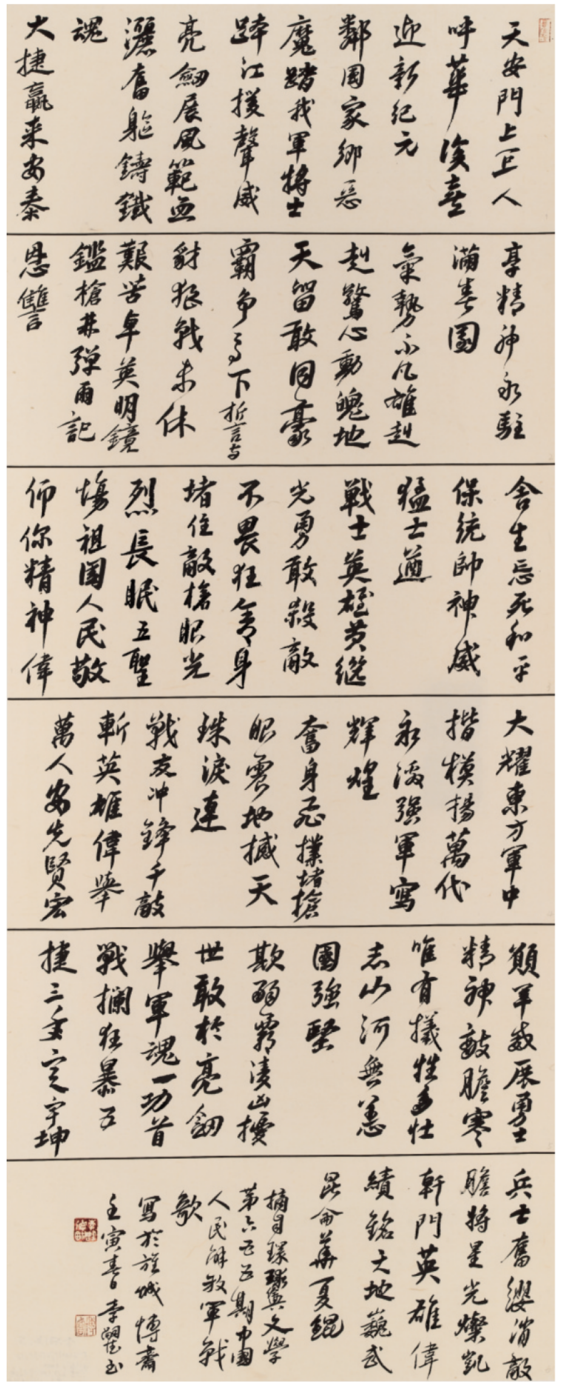 天安門上正人
呼華喜
迎新紀元
鄰国家鄉惡
魔踏我軍將士
跨江援聲威
亮劍展風範血
灑奮軀鑄鐵
魂
大捷贏来安泰
享精神永駐
滿春園
氣勢不凡雄赳
赳驚心動魄地
天留敢同豪
霸争高下誓言与
豺狼戰未休
艱苦卓英明鏡
鑑槍林彈雨記
恩讎
舍生忘死和平
保統帥神威
猛士遵
戰士英雄黄继
光勇敢殺敵
不畏狂舍身
堵住敵槍眼光
烈長眠五聖
慯祖國人民敬
仰你精神偉
大耀東方軍中
揩模揚萬代
永強軍寫
輝煌
奮身飛撲堵搶
眼震地撼天
珠淚連
戰友冲鋒千敵
斬英雄偉舉
萬人安先賢宏
願軍威展勇士
精神敵膽寒
唯有犧牲多壮
志山河無恙
國強堅
欺弱霸凌凶擾
世敢於亮劍
舉軍魂一功首
戰攔狂暴五
捷三年定宇坤
兵士奮纓消敵
膽將星光燦凱
軒門英雄偉
績銘大地巍武
昆侖華夏鯤
摘自環球與文學
第六五五期中國
人民解放軍戰
歌
寫於旌城博齋
壬寅春日李书